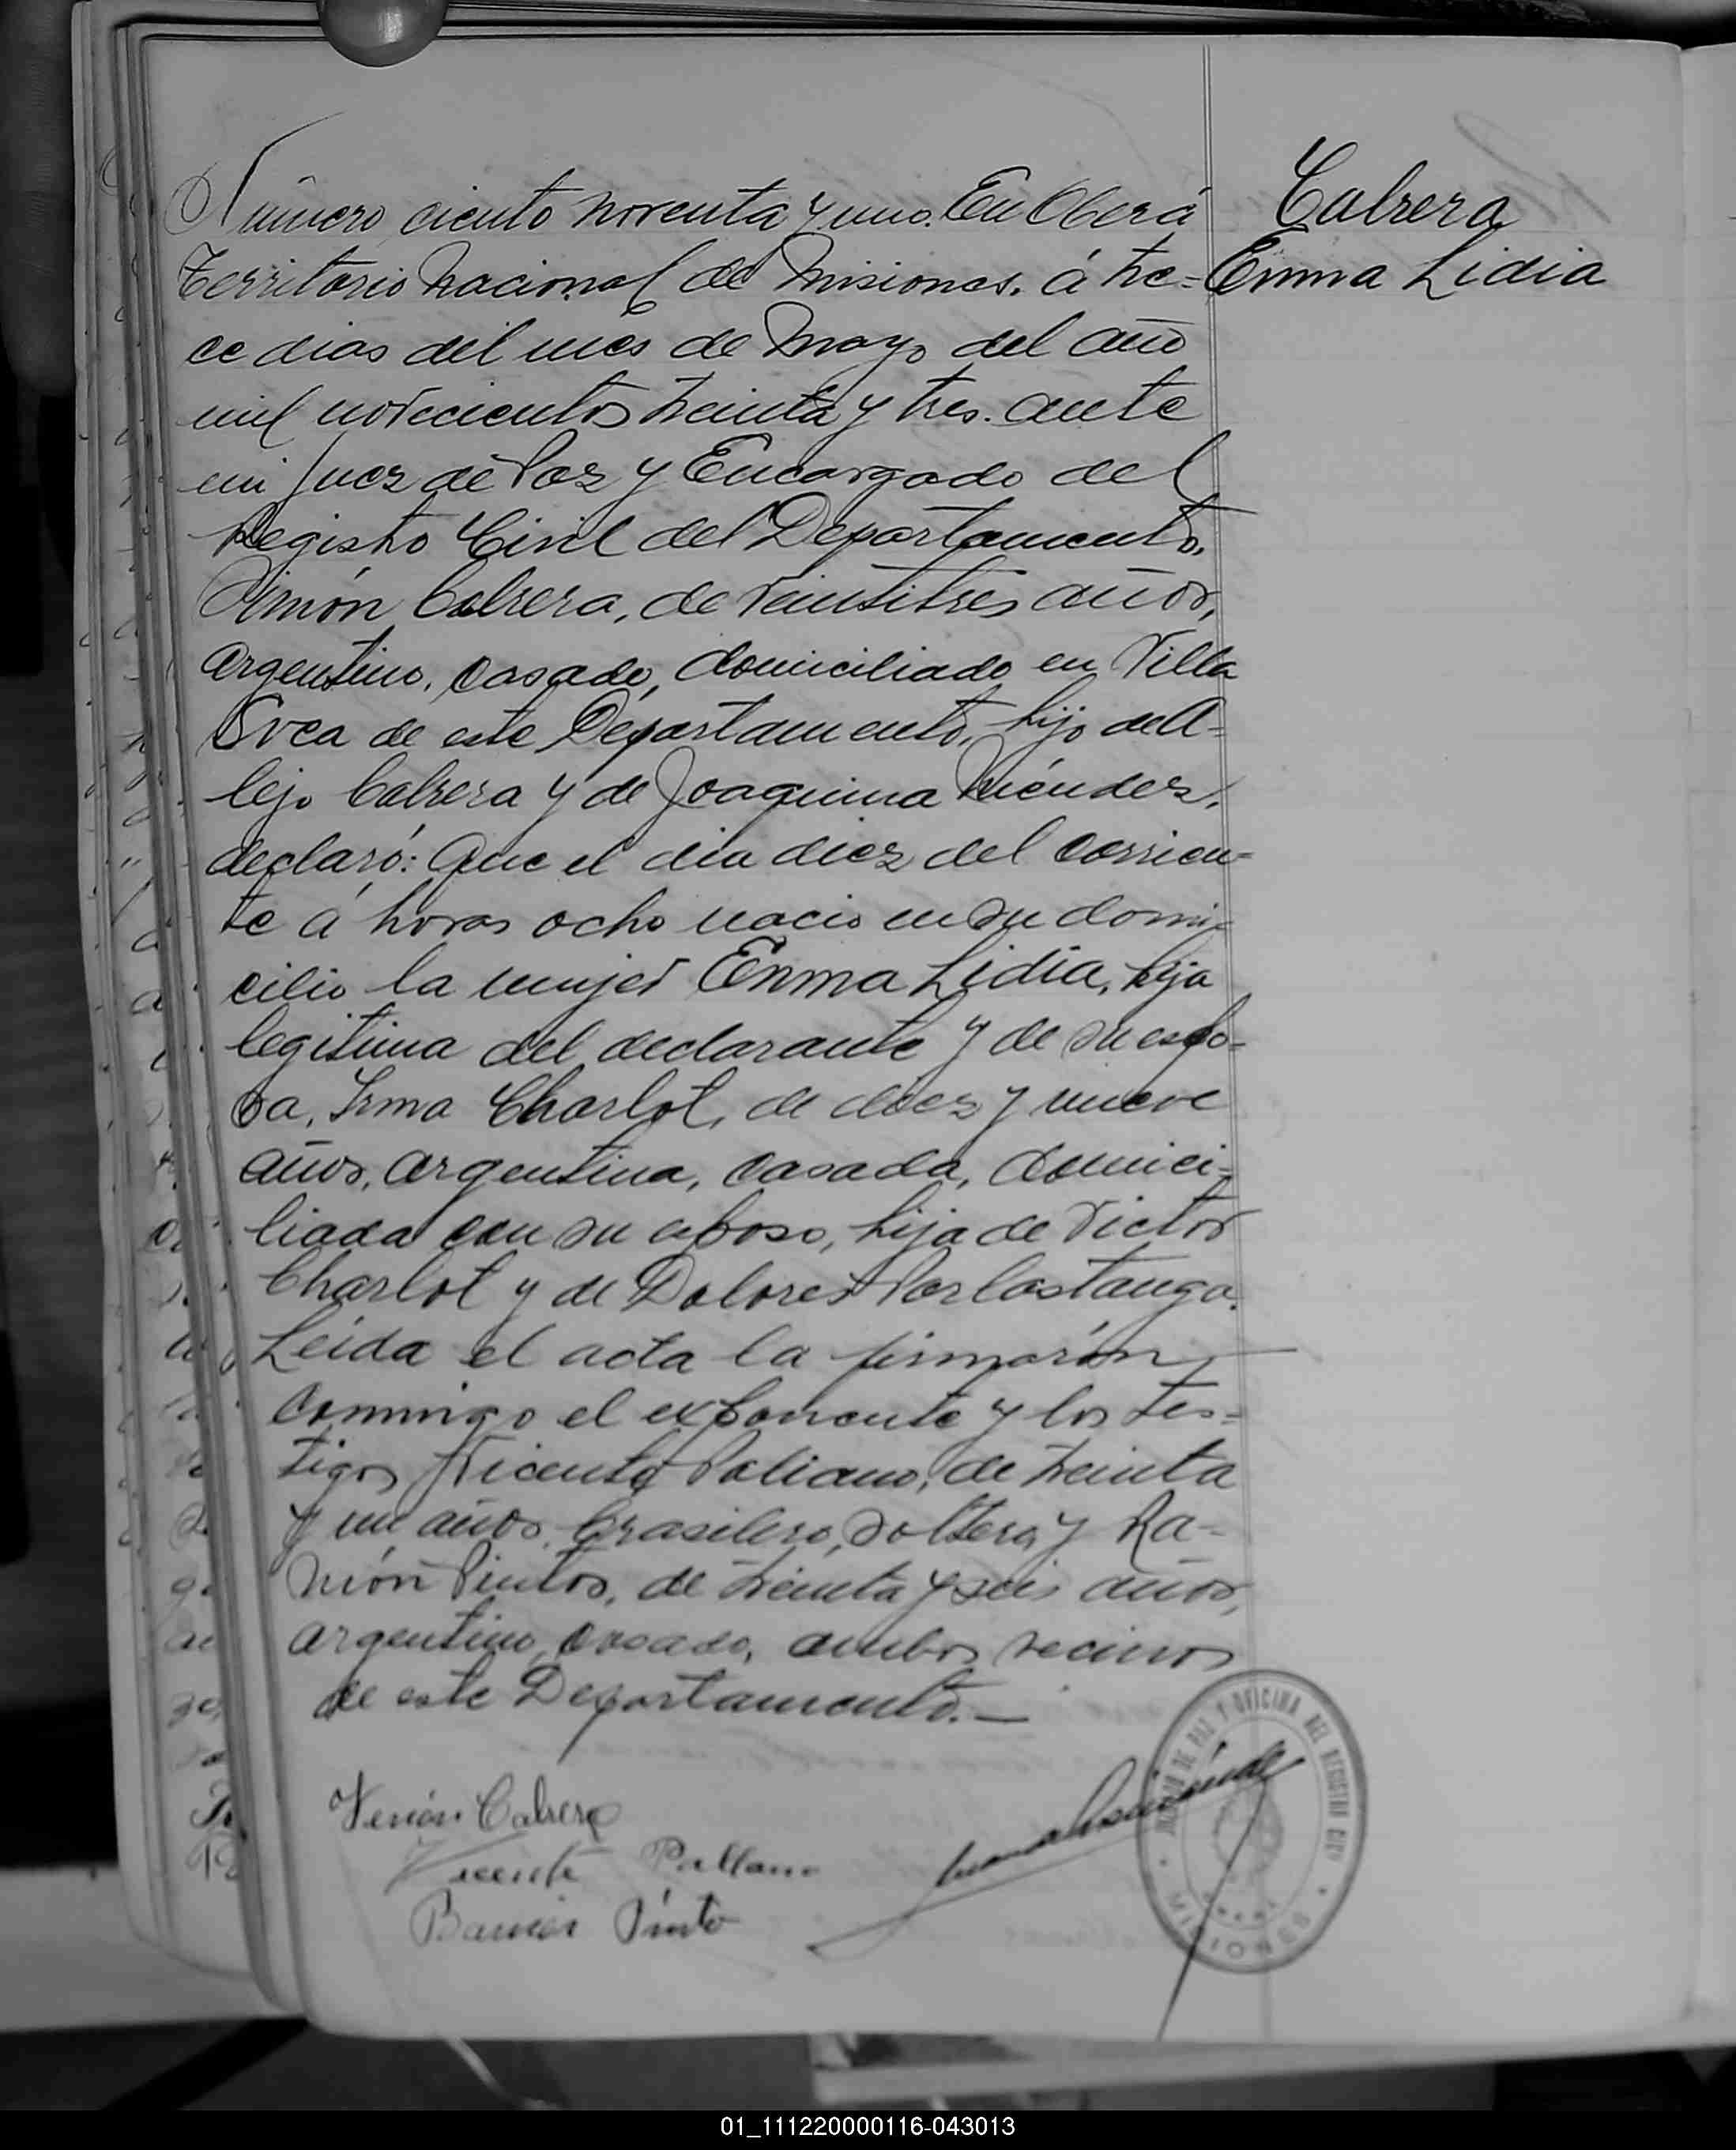 Cabrera
Enma Lidia
Número ciento noventa y uno. En Oberá
Territorio Nacional de Misiones, á tre=
ce dias del mes de Mayo del año
mil novecientos treinta y tres. ante
mi Juez de Paz y Encargado del
Registro Civil del Departamento,
Simón Cabrera, de veintitres años,
argentino, casado, domiciliado en Villa
Svea de este Departamento, hijo de A=
lejo Cabrera y de Joaquina Méndez,
declaró: Que el dia diez del corrien=
te á horas ocho nació en su domi=
cilio la mujer Enma Lidia, hija
legitima del declarante y de su espo=
sa, Irma Charlot, de diez y nueve
años, argentina, casada, domici=
liada con su esposo, hija de Victor
Charlot y de Dolores
Leida el acta la firmarón
conmigo el exponente y los tes=
tigos Vicente Paliano, de treinta
y un años, brasilero, soltero, y Ra=
món Pintos, de treinta y seis años,
argentino, casado, ambos vecinos
de este Departamento.—
Cabrera
Vicente Pallano
Pinto
JUZGADO DE PAZ Y OFICINA DEL REGISTRO CIVIL
MISIONES
01_111220000116-043013